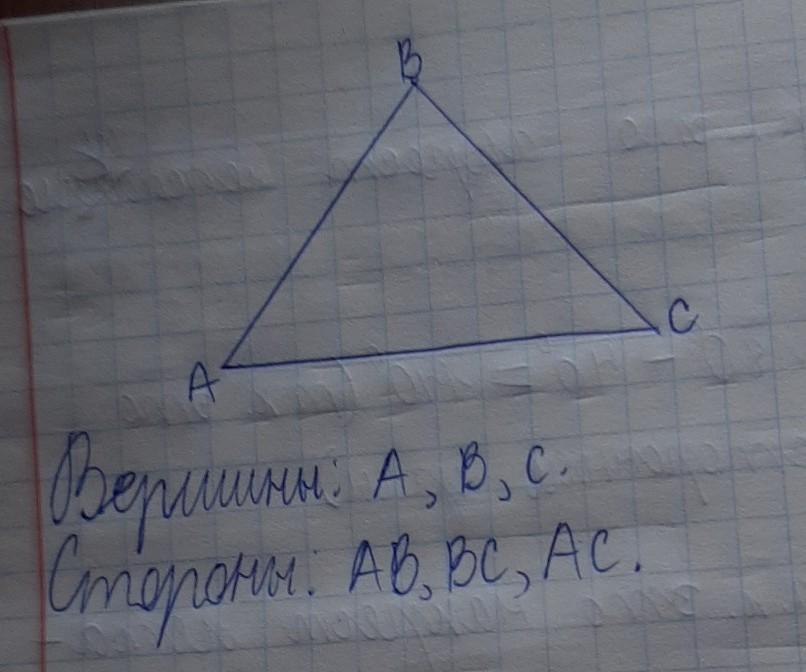 B
A
C
Вершины: A, B, C.
Стороны: AB, BC, AC.